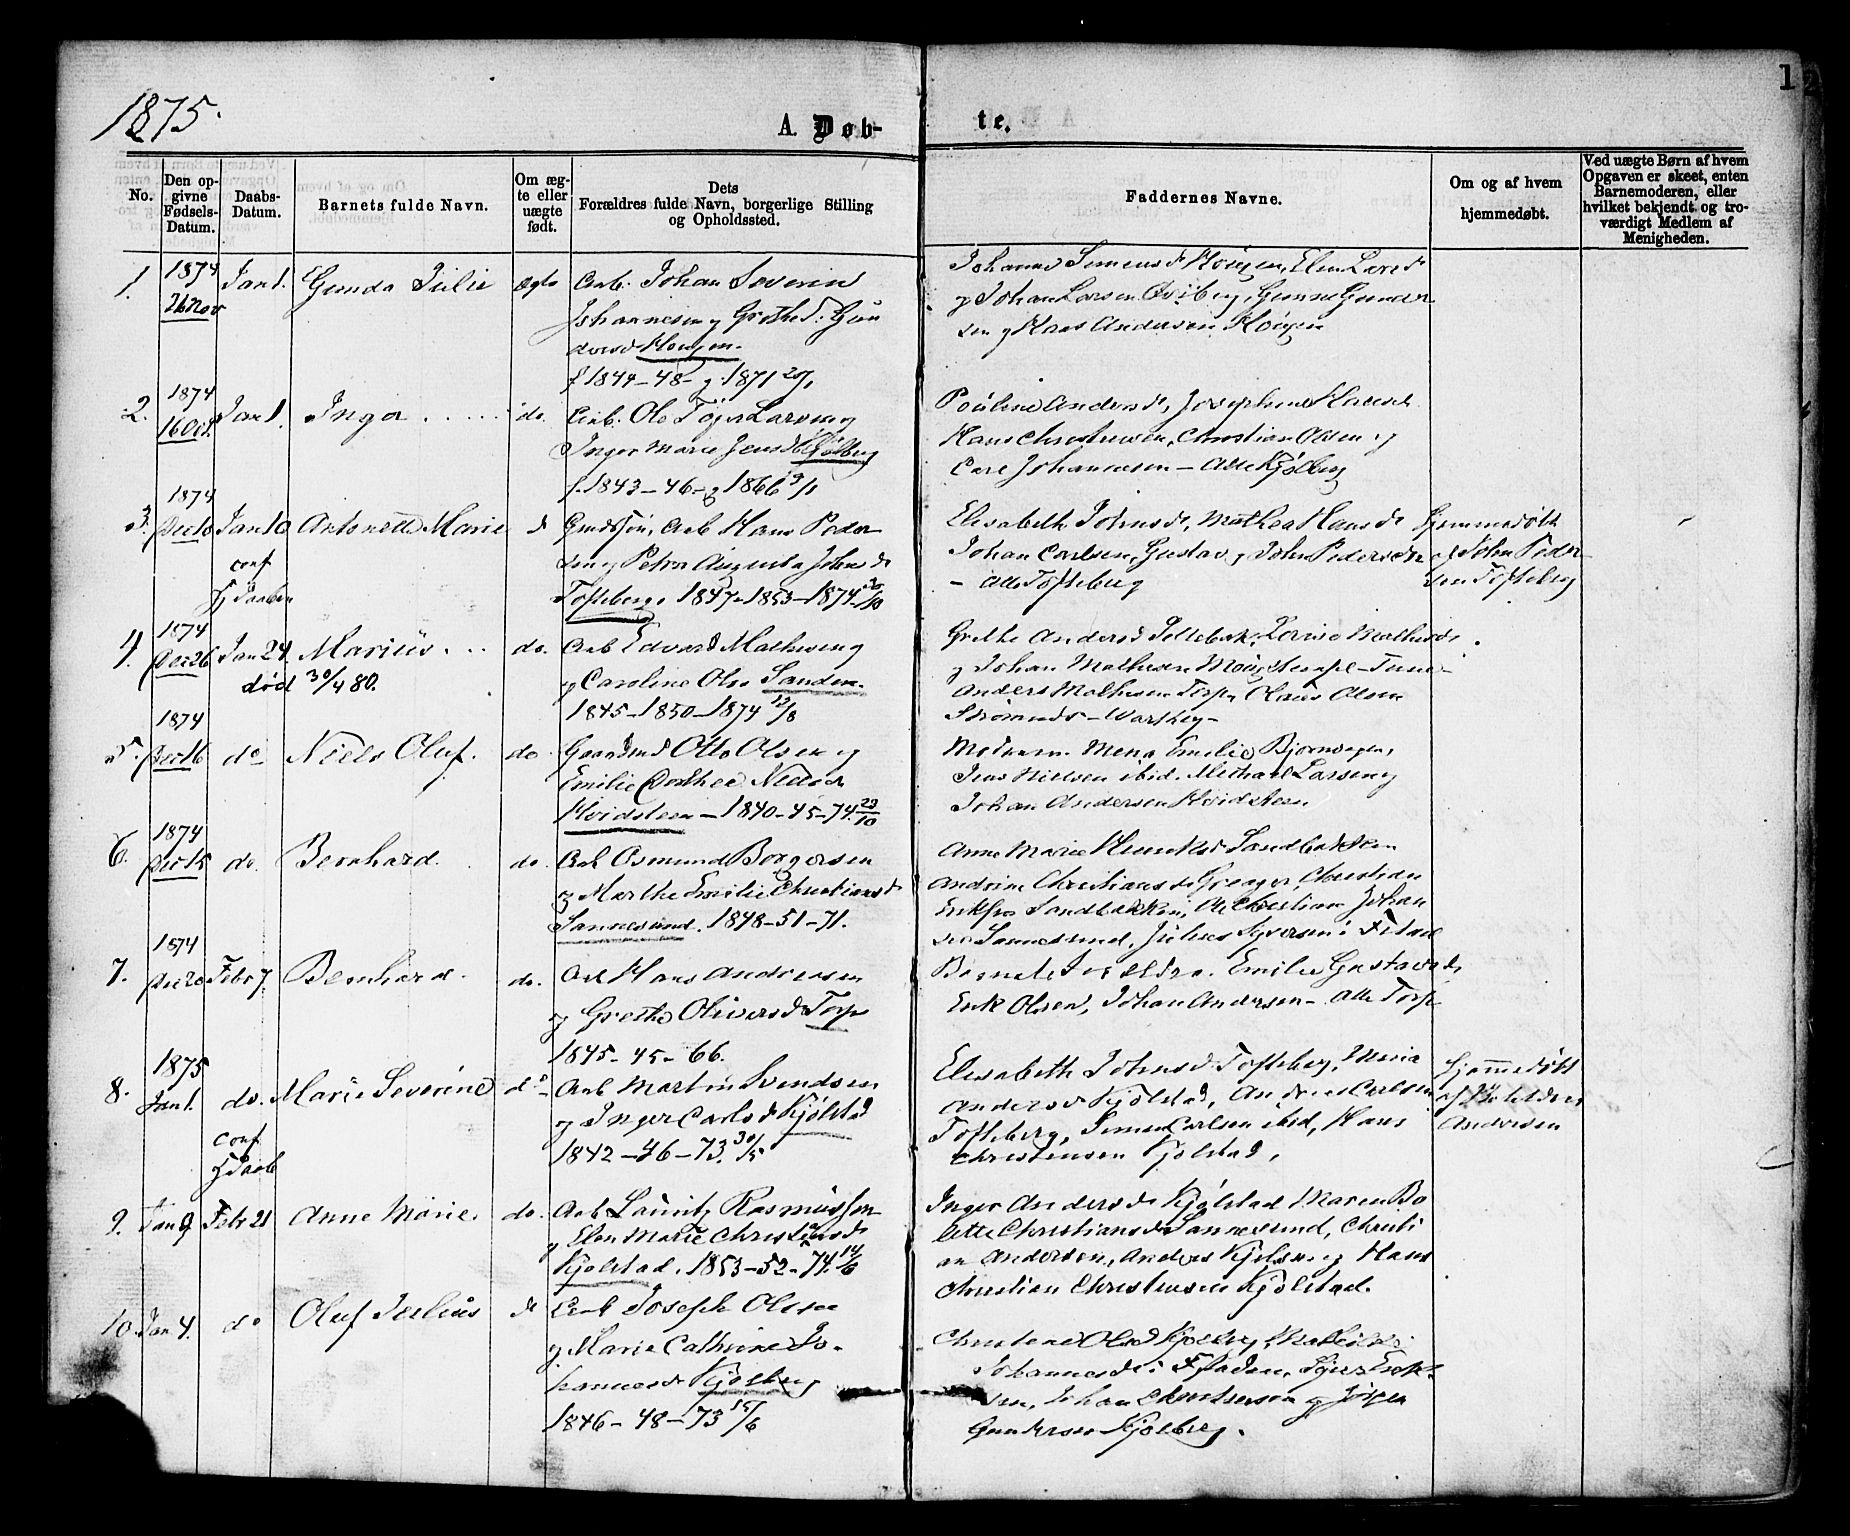 1875.
A. Døb-
te.
1
No.
Den op-
givne
Fødsels-
Datum.
Daabs-
Datum.
Barnets fulde Navn.
Om æg-
te eller
uægte
født.
Dets
Forældres fulde Navn, borgerlige Stilling
og Opholdssted.
Faddernes Navne.
Om og af hvem
hjemmedøbt.
Ved uægte Børn af hvem
Opgaven er skeet, enten
Barnemoderen, eller
hvilket bekjendt og tro-
værdigt Medlem af
Menigheden.
1.
1874
26 Nov
Jan 1.
Gunda Julie
ægte
Arb: Johan Severin
Johannesen og Grethe
Hougen
f 1844-48- g. 1871 20/1
Johanne Simens d Hougen, Elen Lars d
og Johan Larsen, Gunne Gunder
sen og Hans Andersen Hougen
2.
1874
16 Oct.
Jan 1.
Inga
do.
Arb: Ole Larsen og
Inger Marie Jens d Kjølberg
f. 1843-46- g 1866
Pouline Anders d, Josephine Hans d
Hans Christensen, Christian Olsen og
Carl Johannesen - Alle Kjølberg
3.
1874
Dec 10
Jan 10
conf
Hj Daaben
Antonette Marie
d
Arb Hans Peder
sen og Petra Augusta Johns d
Tofteberg. 1847-1853-1874
Elisabeth Johns d, Mathea Hans d
Johan Carlsen, Gustav og John Pedersen
- Alle Tofteberg
Hjemmedøbt
af John Peder
sen Tofteberg
4.
1874
Dec 26
Jan 24
Marius
død 30/4 80.
do.
Arb Edvard Mathisen og
og Caroline Ols d Sanden.
1845-1850-1874 12/8
Grethe Anders d, Lovise Mathis d
og Johan Mathisen - Tune
Anders Mathisen Torp, Olaus Olsen
- Warteig -
5.
1874
Dec 16
do
Niels Oluf.
do
Otto Olsen og
Emilie Dorthea Niels d
Hvidsteen - 1840-45-74. 23/10
Emilie Bjørnengen,
Jens Nielsen ibid. Michael Larsen og
Johan Andersen Hvidsteen
6.
1874
Dec 15
do.
Bernhard.
do.
Arb Osmund Borgersen
og Marthe Emilie Christians d
Sannesund. 1848-51-71.
Anne Marie Sandbakken
Andrine Christians d, Christian
Sandbakken, Ole Christian Johan
sen Sannesund, Julius Syversen
7.
1874
Dec 20
Febr 7.
Bernhard.
do.
Arb Hans Andersen
og Grethe Olivers d Torp
1845-45-66.
Barnets Forældre. Emilie Gustavs d
Erik Olsen, Johan Andersen - Alle Torp
8.
1875
Jan 1.
do.
conf
Hj Daab
Marie Severine
do
Arb Martin Svendsen
og Inger Carls d Kjølstad
1842-46-73. 30/5
Elisabeth Johns d Tofteberg, Maria
Anders d Kjølstad, Andreas Carlsen
Tofteberg, Simen Carlsen ibid, Hans
Christensen Kjølstad,
Hjemmedøbt
af
Andersen
9.
Jan 9
Febr 21
Anne Marie
do.
Arb Lauritz Rasmussen
og Elen Marie Christens d
Kjølstad. 1853-52-74. 14/6
Inger Anders d Kjølstad Maren Bo
lette Christians d Sannesund, Christi
an Andersen, Anders Kjølsen og Hans
Christian Christensen Kjølstad.
10.
Jan 4.
do
Oluf Julius
do
Arb Joseph Olsen
og Marie Cathrine Jo-
hannes d Kjølberg
1846-48-73 15/6
Christine Ols d Kjølberg, Mathilde
Johannes d, Syver Erik-
sen, Johan Christensen og Jørgen
Gundersen Kjølberg.